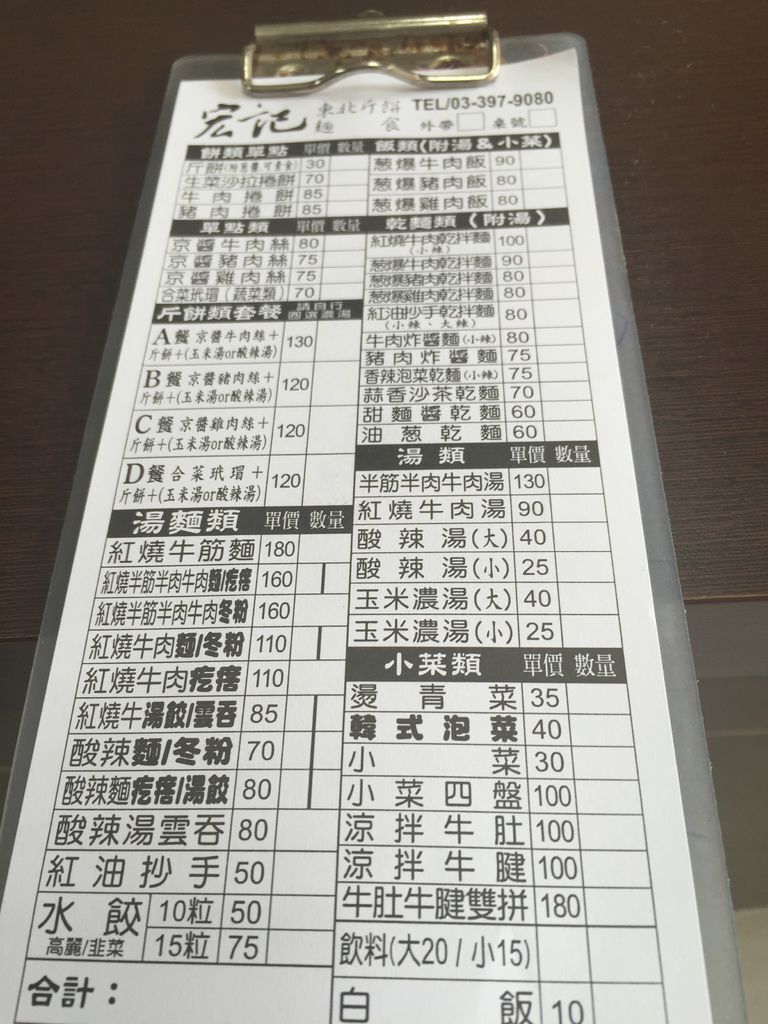 宏記 東北斤餅 麵食 TEL/03-397-9080
外帶 桌號
餅類單點 單價 數量
斤餅 30
生菜沙拉捲餅 70
牛肉捲餅 85
豬肉捲餅 85
單點類 單價 數量
京醬牛肉絲 80
京醬豬肉絲 75
京醬雞肉絲 75
合菜玳瑁（蔬菜類） 70
斤餅類套餐 請自行圈選濃湯
A餐 京醬牛肉絲＋
斤餅＋(玉米湯or酸辣湯) 130
B餐 京醬豬肉絲＋
斤餅＋(玉米湯or酸辣湯) 120
C餐 京醬雞肉絲＋
斤餅＋(玉米湯or酸辣湯) 120
D餐 合菜玳瑁＋
斤餅＋(玉米湯or酸辣湯) 120
湯麵類 單價 數量
紅燒牛筋麵 180
紅燒半筋半肉牛肉麵/疙瘩 160
紅燒半筋半肉牛肉冬粉 160
紅燒牛肉麵/冬粉 110
紅燒牛肉疙瘩 110
紅燒牛湯餃/雲吞 85
酸辣麵/冬粉 70
酸辣麵疙瘩/湯餃 80
酸辣湯雲吞 80
紅油抄手 50
水餃 高麗/韭菜
10粒 50
15粒 75
合計：
飯類(附湯&小菜)
葱爆牛肉飯 90
葱爆豬肉飯 80
葱爆雞肉飯 80
乾麵類（附湯）
紅燒牛肉乾拌麵 (小辣) 100
葱爆牛肉乾拌麵 90
葱爆豬肉乾拌麵 80
葱爆雞肉乾拌麵 80
紅油抄手乾拌麵 (小辣、大辣) 80
牛肉炸醬麵(小辣) 80
豬肉炸醬麵 75
香辣泡菜乾麵(小辣) 75
蒜香沙茶乾麵 70
甜麵醬乾麵 60
油葱乾麵 60
湯類 單價 數量
半筋半肉牛肉湯 130
紅燒牛肉湯 90
酸辣湯(大) 40
酸辣湯(小) 25
玉米濃湯(大) 40
玉米濃湯(小) 25
小菜類 單價 數量
燙青菜 35
韓式泡菜 40
小菜 30
小菜四盤 100
涼拌牛肚 100
涼拌牛腱 100
牛肚牛腱雙拼 180
飲料(大20 / 小15)
白飯 10